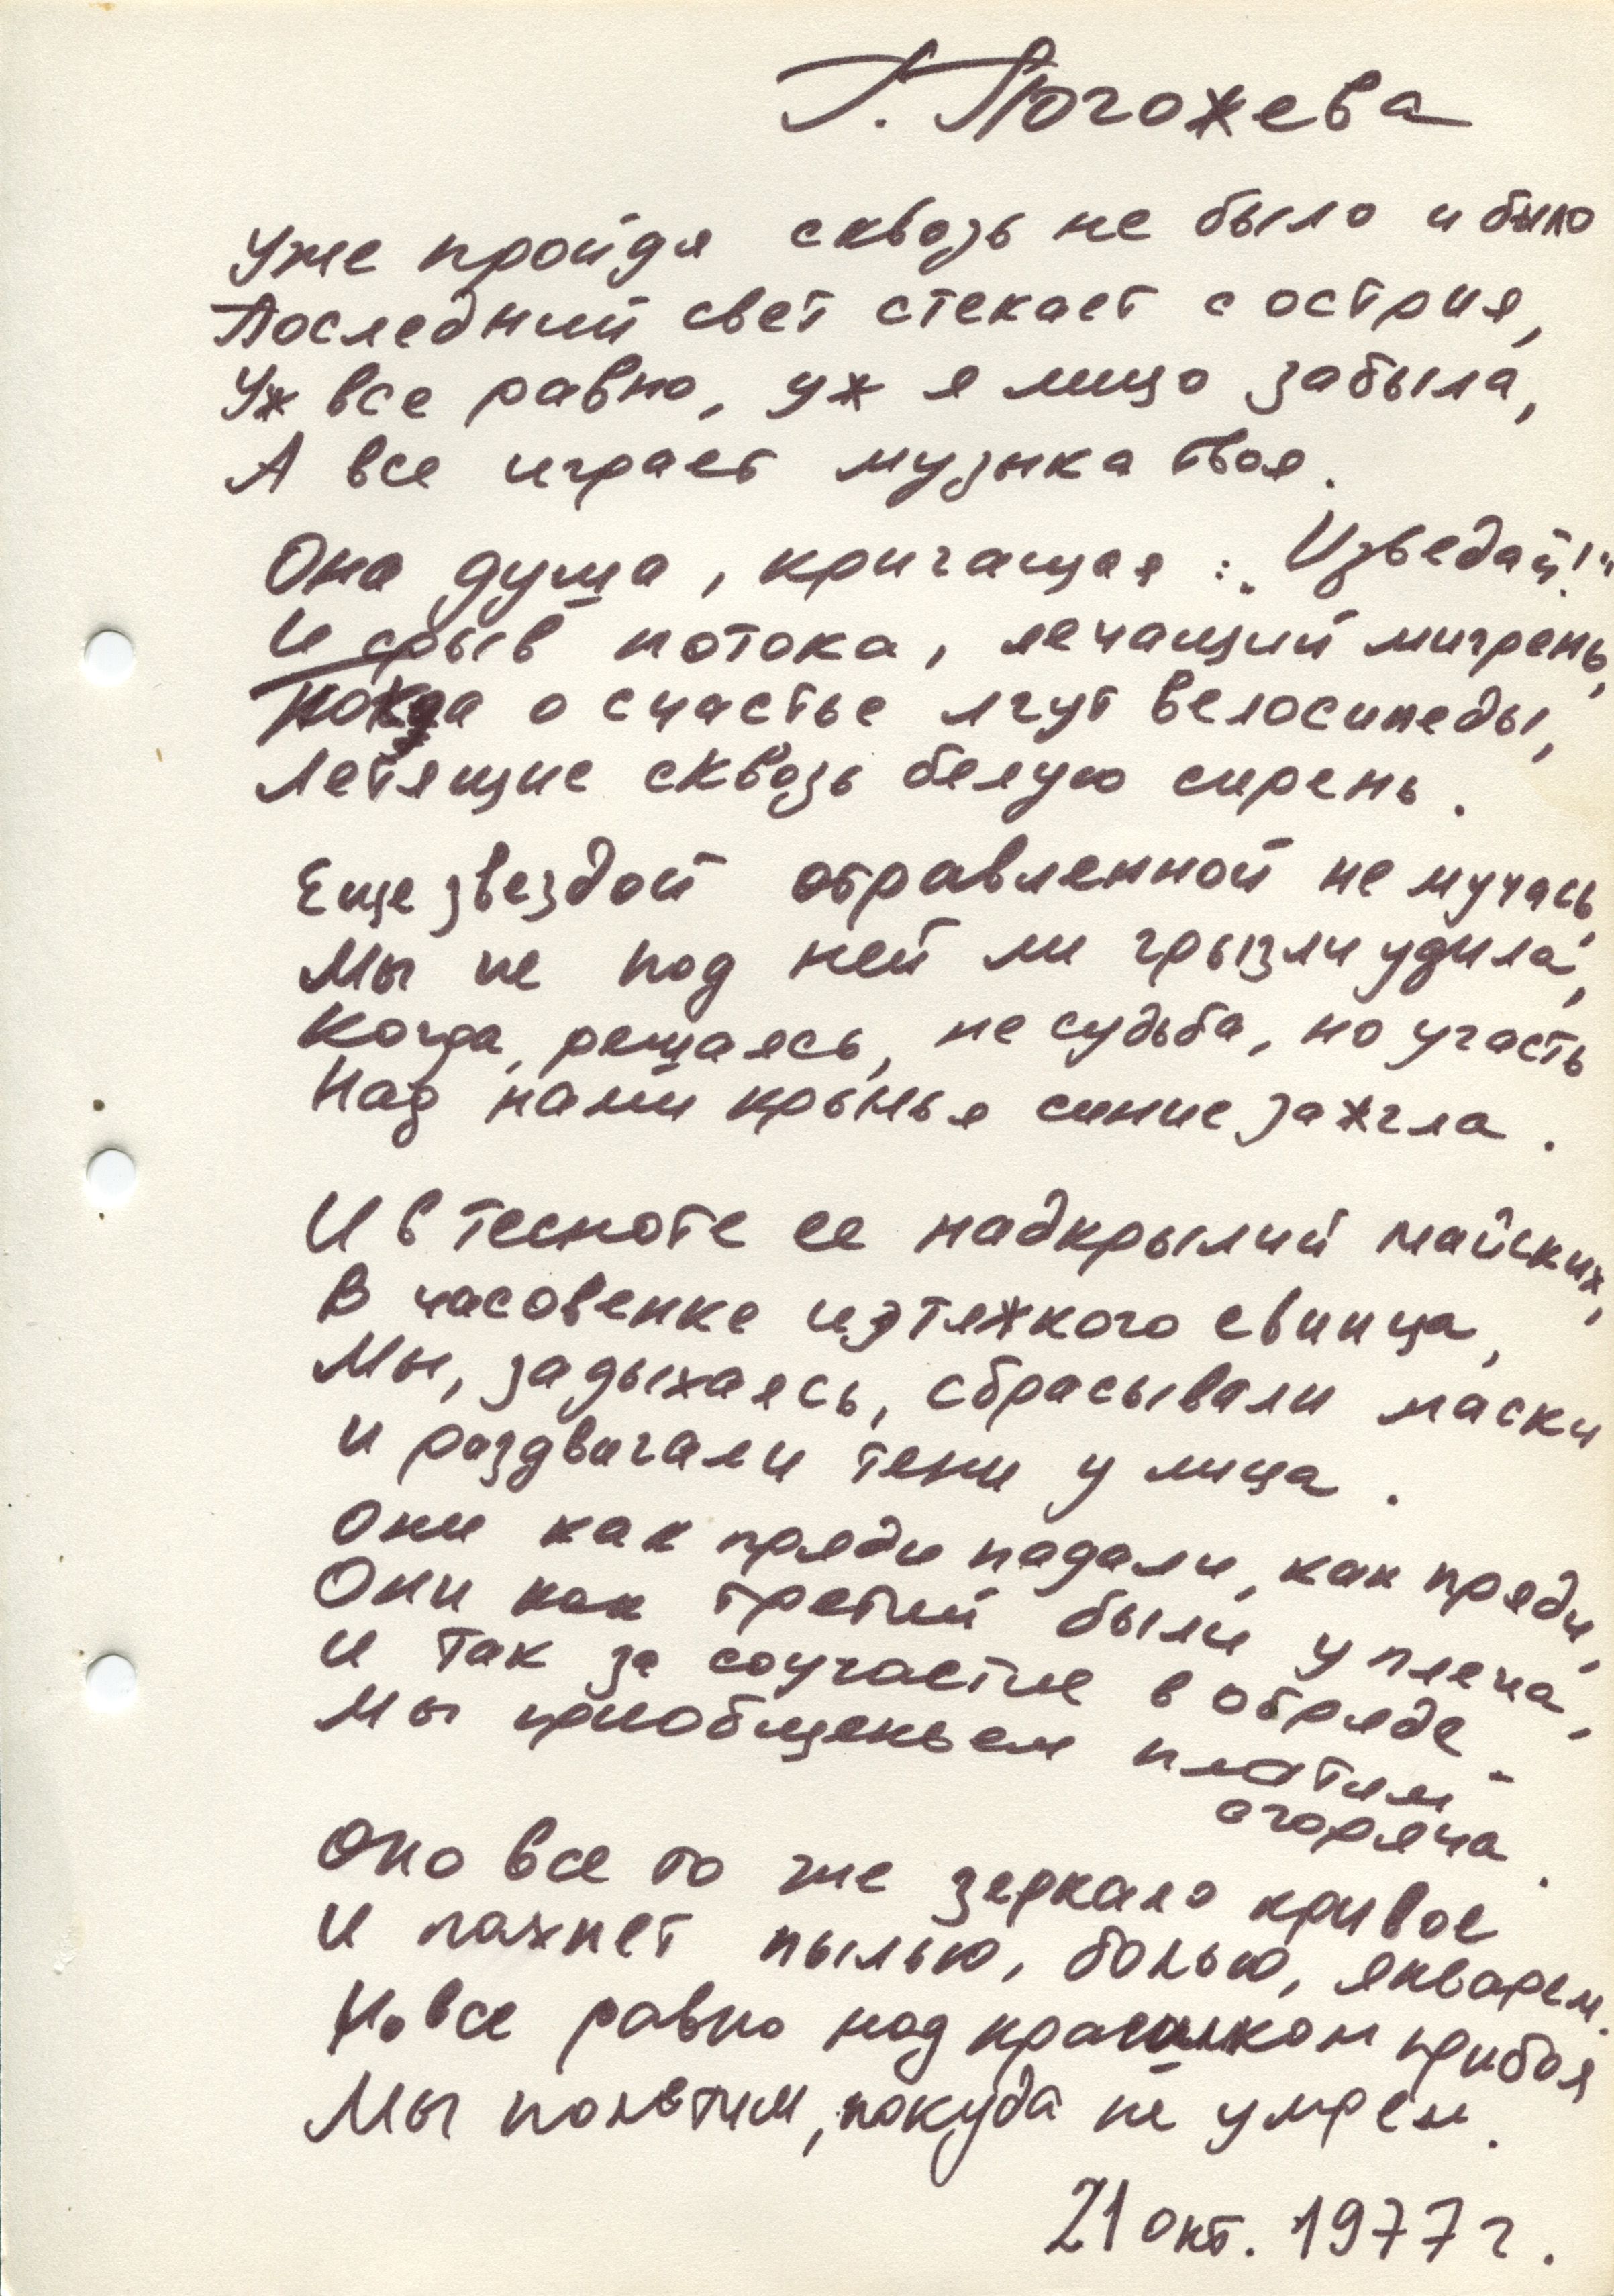 Г. Погожева
Уже пройдя сквозь не было и было
Последний свет стекает с острия,
Уж все равно, уж я лицо забыла,
А все играет музыка твоя.
Она душа, кричащая: „Изведай!“
И срыв потока, лечащий мигрень,
Когда о счастье лгут велосипеды,
Летящие сквозь белую сирень.
Еще звездой отравленной не мучась,
Мы не под ней ли грызли удила,
Когда, решаясь, не судьба, но участь
Над нами крылья синие зажгла.
И в тесноте ее надкрылий майских,
В часовенке из тяжкого свинца,
Мы, задыхаясь, сбрасывали маски
И раздвигали тени у лица.
Они как пряди падали, как пряди,
Они как третий были у плеча,
И так за соучастие в обряде –
Мы приобщеньем платим
сгоряча.
Оно все то же зеркало кривое
И пахнет пылью, болью, январем.
Но все равно над краешком прибоя
Мы полетим, покуда не умрем.
21 окт. 1977 г.